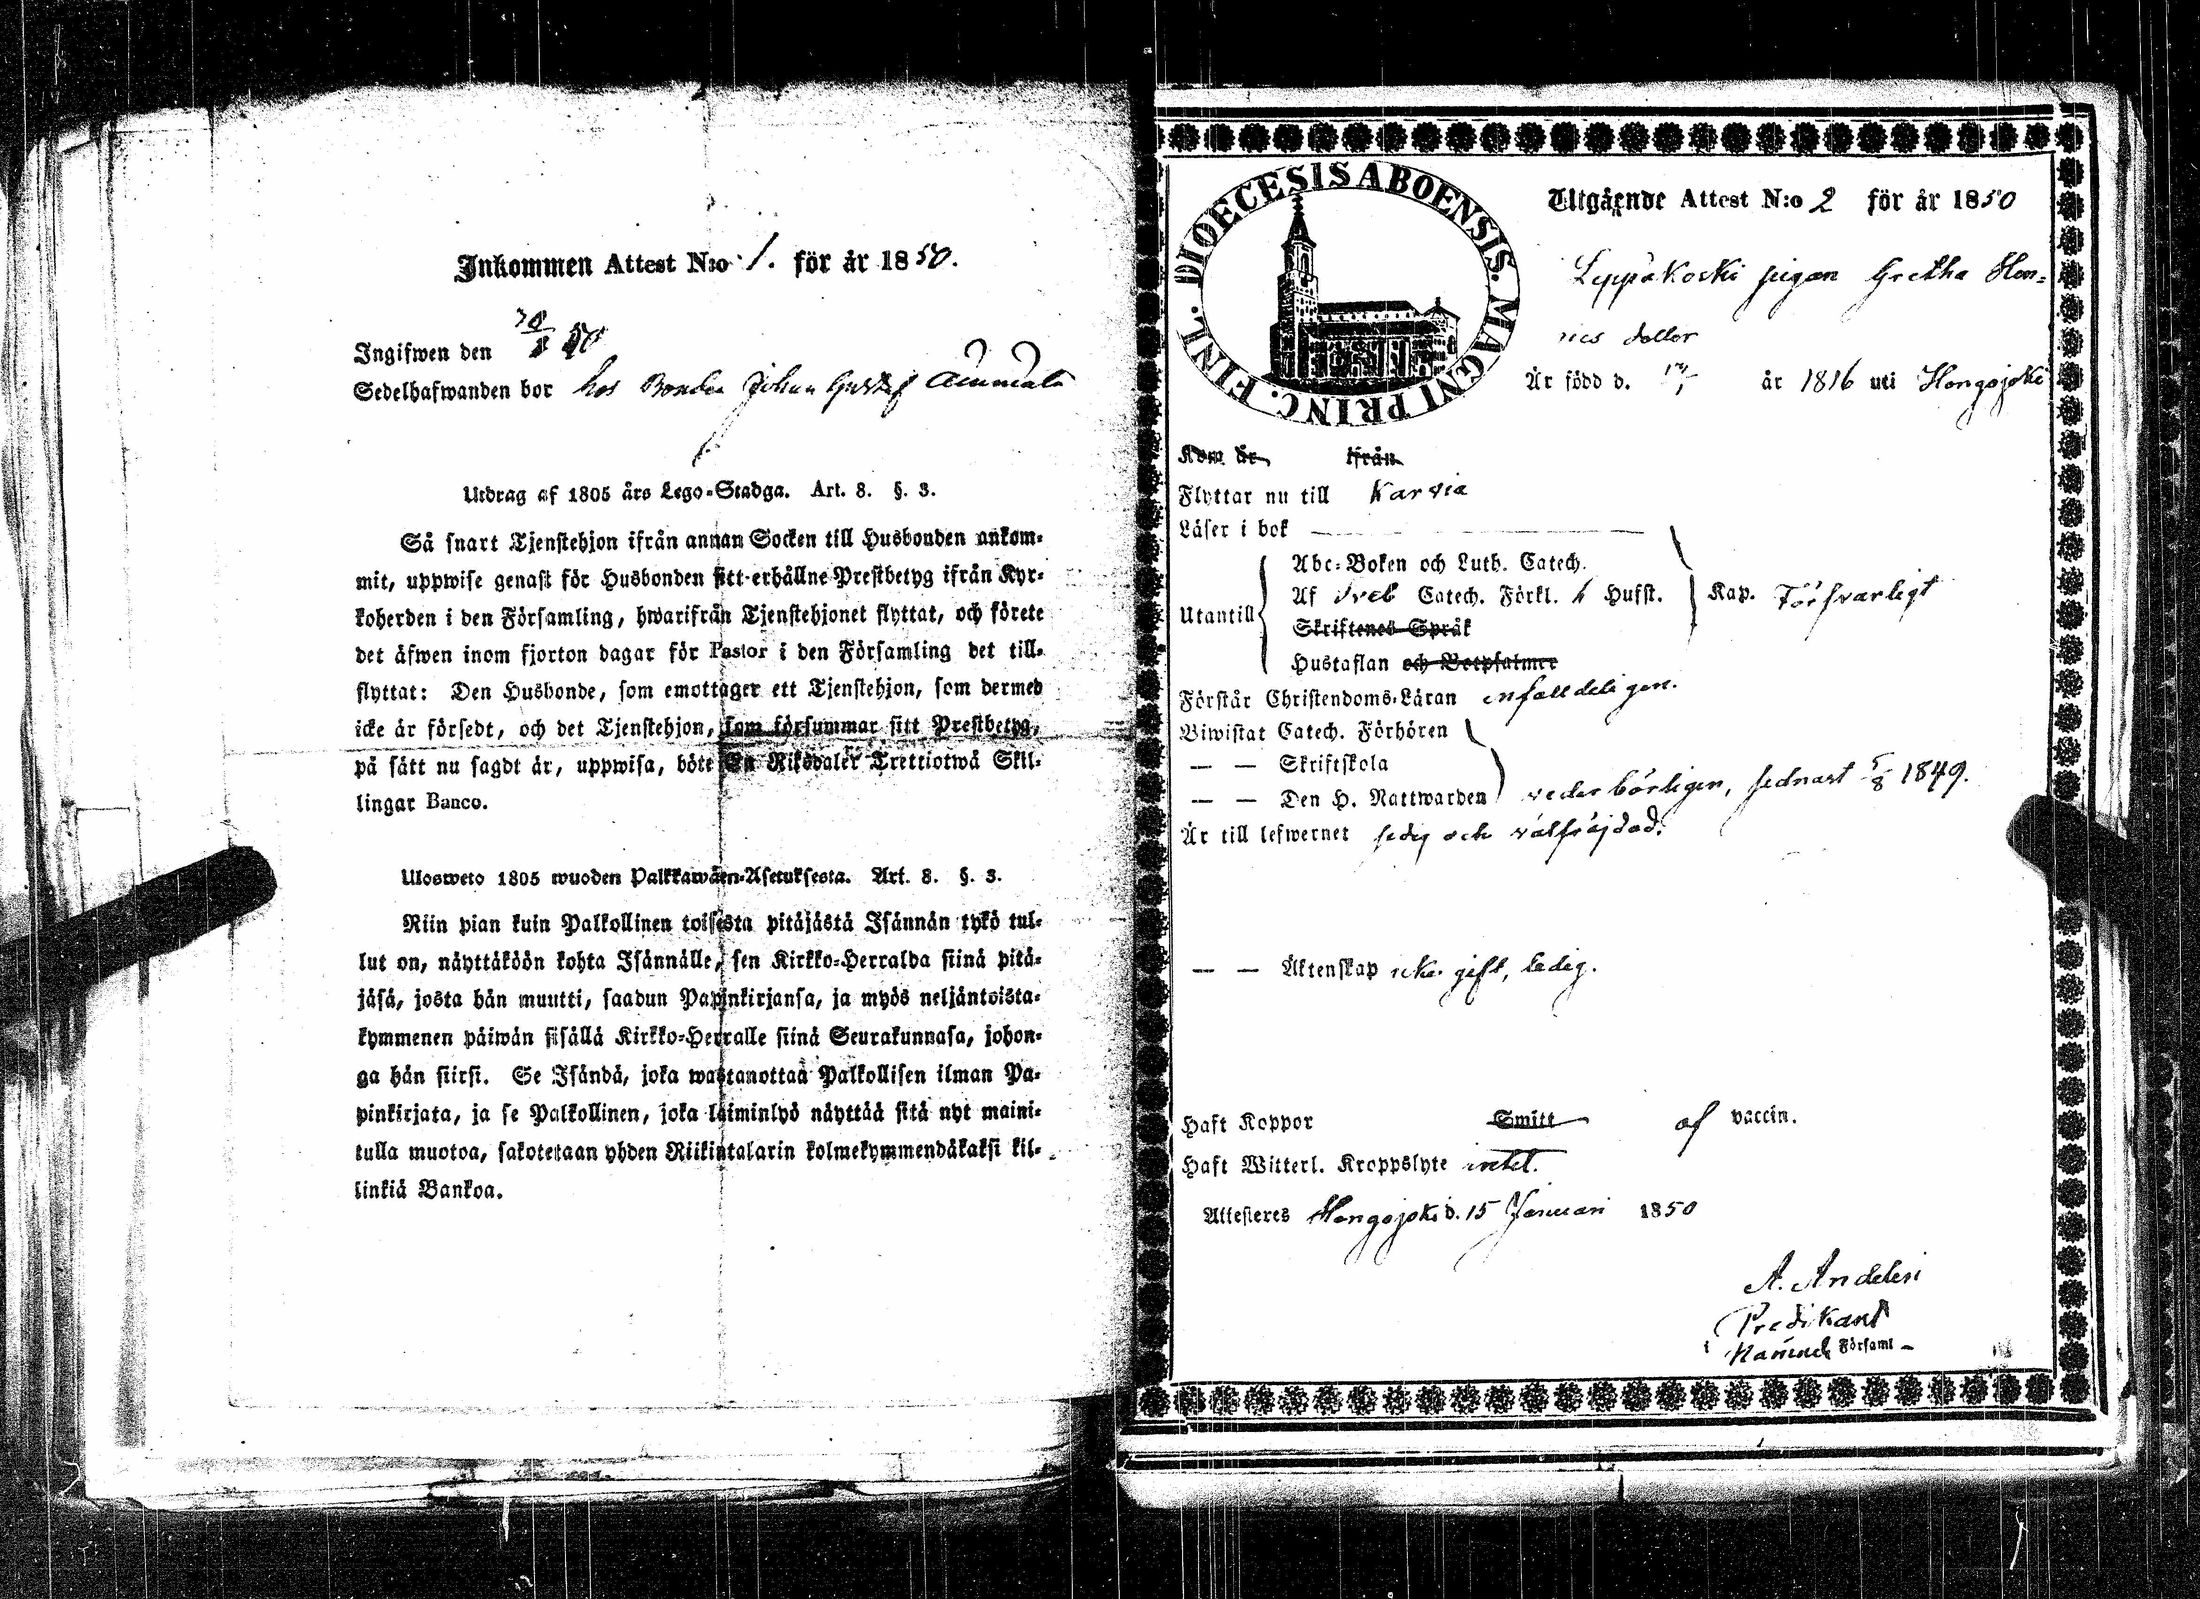 Inkommen Attest N:o 1. för år 1850.
Ingifwen den 50
Sedelhafwanden bor hos Bonden Johan Gustaf Ämmälä
Utdrag af 1805 års Lego-Stadga. Art. 8. §. 3.
Så snart Tjenstehjon ifrån annan Socken till Husbonden ankom-
mit, uppwise genast för Husbonden sitt erhållne Prestbetyg ifrån Kyr-
koherden i den Församling, hwarifrån Tjenstehjonet flyttat, och förete
det äfwen inom fjorton dagar för Pastor i den Församling det till-
flyttat: Den Husbonde, som emottager ett Tjenstehjon, som dermed
icke är försedt, och det Tjenstehjon, som försummar sitt Prestbetyg,
på sätt nu sagdt är, uppwisa, böte En Riksdaler Trettiotwå Skil-
lingar Banco.
Ulosweto 1805 wuoden Palkkawäen-Asetuksesta. Art. 8. §. 3.
Niin pian kuin Palkollinen toisesta pitäjästä Isännän tykö tul-
lut on, näyttäköön kohta Isännälle, sen Kirkko-Herralda siinä pitä-
jäsä, josta hän muutti, saadun Papinkirjansa, ja myös neljäntoista-
kymmenen päiwän sisällä Kirkko-Herralle siinä Seurakunnasa, johon-
ga hän siirsi. Se Isändä, joka wastanottaa Palkollisen ilman Pa-
pinkirjata, ja se Palkollinen, joka laiminlyö näyttää sitä nyt maini-
tulla muotoa, sakotetaan yhden Riikintalarin kolmekymmendäkaksi kil-
linkiä Bankoa.
DIOECESIS ABOENSIS. MAGNI PRINC. FINL.
Utgående Attest N:o 2 för år 1850
Leppäkoski pigan Gretha Hen-
rics dotter
Är född d. år 1816 uti Hongojoki
Kom år ifrån
Flyttar nu till Karvia
Läser i bok
Utantill
Abc-Boken och Luth. Catech.
Af Sveb Catech. Förkl. Hufst. Kap. Försvarligt
Skriftenes Språk
Hustaflan och Botpsalmer
Förstår Christendoms-Läran enfalldeligen.
Biwistat Catech. Förhören
— — Skriftskola
— — Den H. Nattwarden vederbörligen, sednast 5/8 1849.
Är till lefwernet sedig och välfräjdad.
— — Äktenskap icke gift, ledig.
Haft Koppor Smitt af vaccin.
Haft Witterl. Kroppslyte intet.
Attesteres Hongojoki d. 15 Januari 1850
A. Andelin
Predikant
i Nämnde Församl